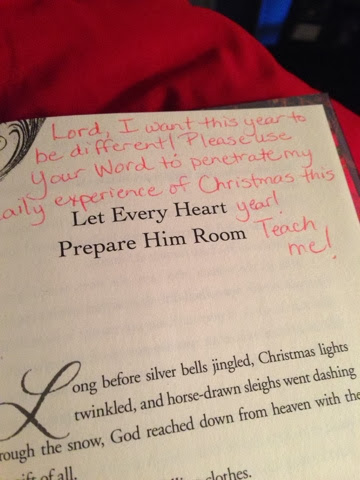 Lord, I want this year to
be different! Please use
Your Word to penetrate my
daily experience of Christmas this
Let Every Heart year!
Prepare Him Room Teach
me!
Long before silver bells jingled, Christmas lights
twinkled, and horse-drawn sleighs went dashing
rough the snow, God reached down from heaven with the
ift of all.
clothes.